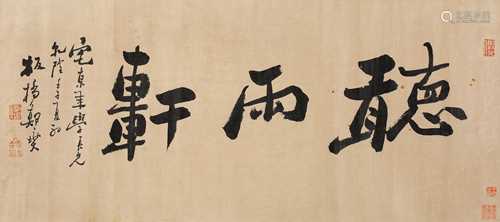 聽雨軒
宅東年學長兄
乾隆壬子夏初
板橋鄭燮